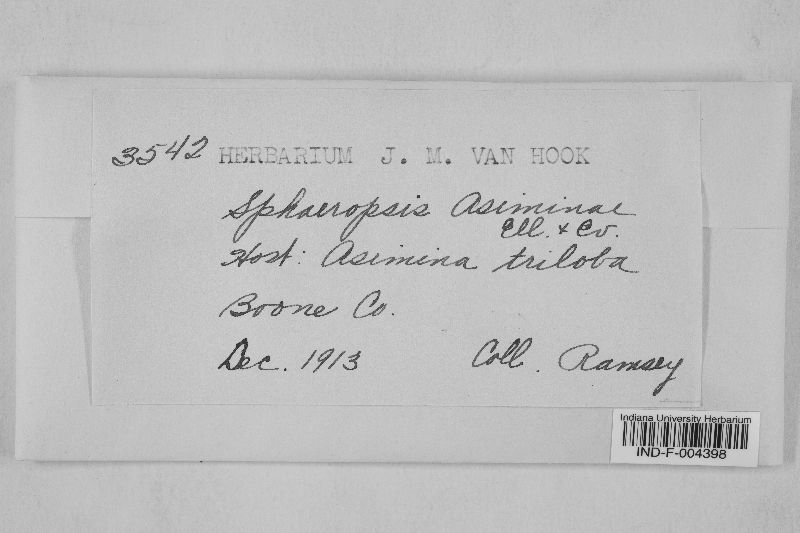 3542 HERBARIUM J. M. VAN HOOK
Sphaeropsis Asiminae
Ell. & Ev.
Host: Asimina triloba
Boone Co.
Dec. 1913 Coll. Ramsey
Indiana University Herbarium
IND-F-004398